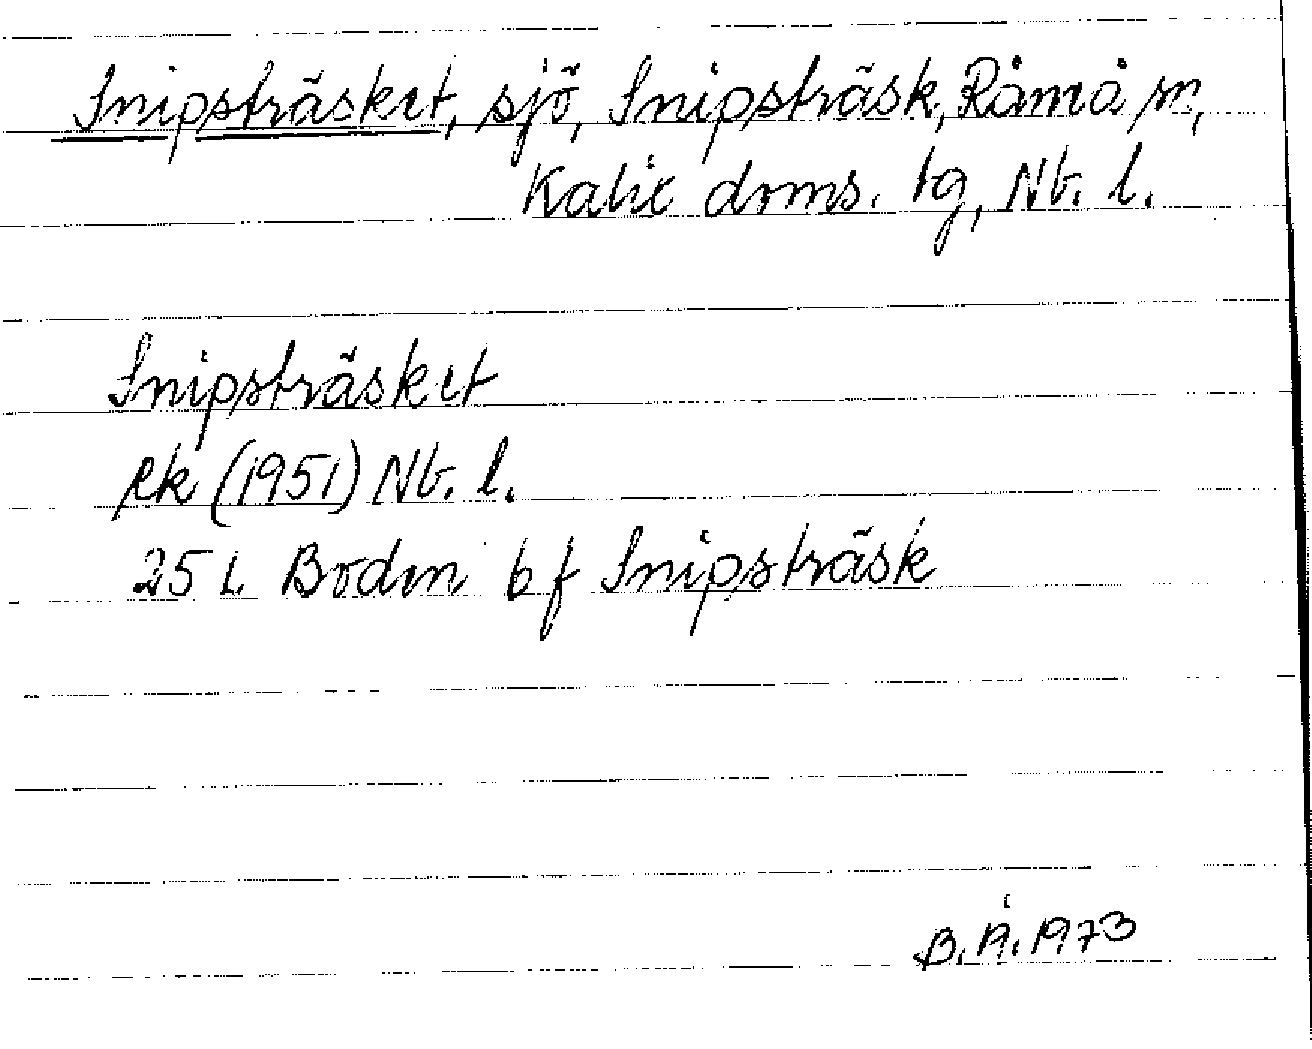 Snipsträsket, sjö, Snipsträsk, Råmå sn,
Kalix doms. tg, Nb. l.
Snipsträsket
Rk (1951) Nb. l.
25 L Boden bf Snipsträsk
B. Å. 1973